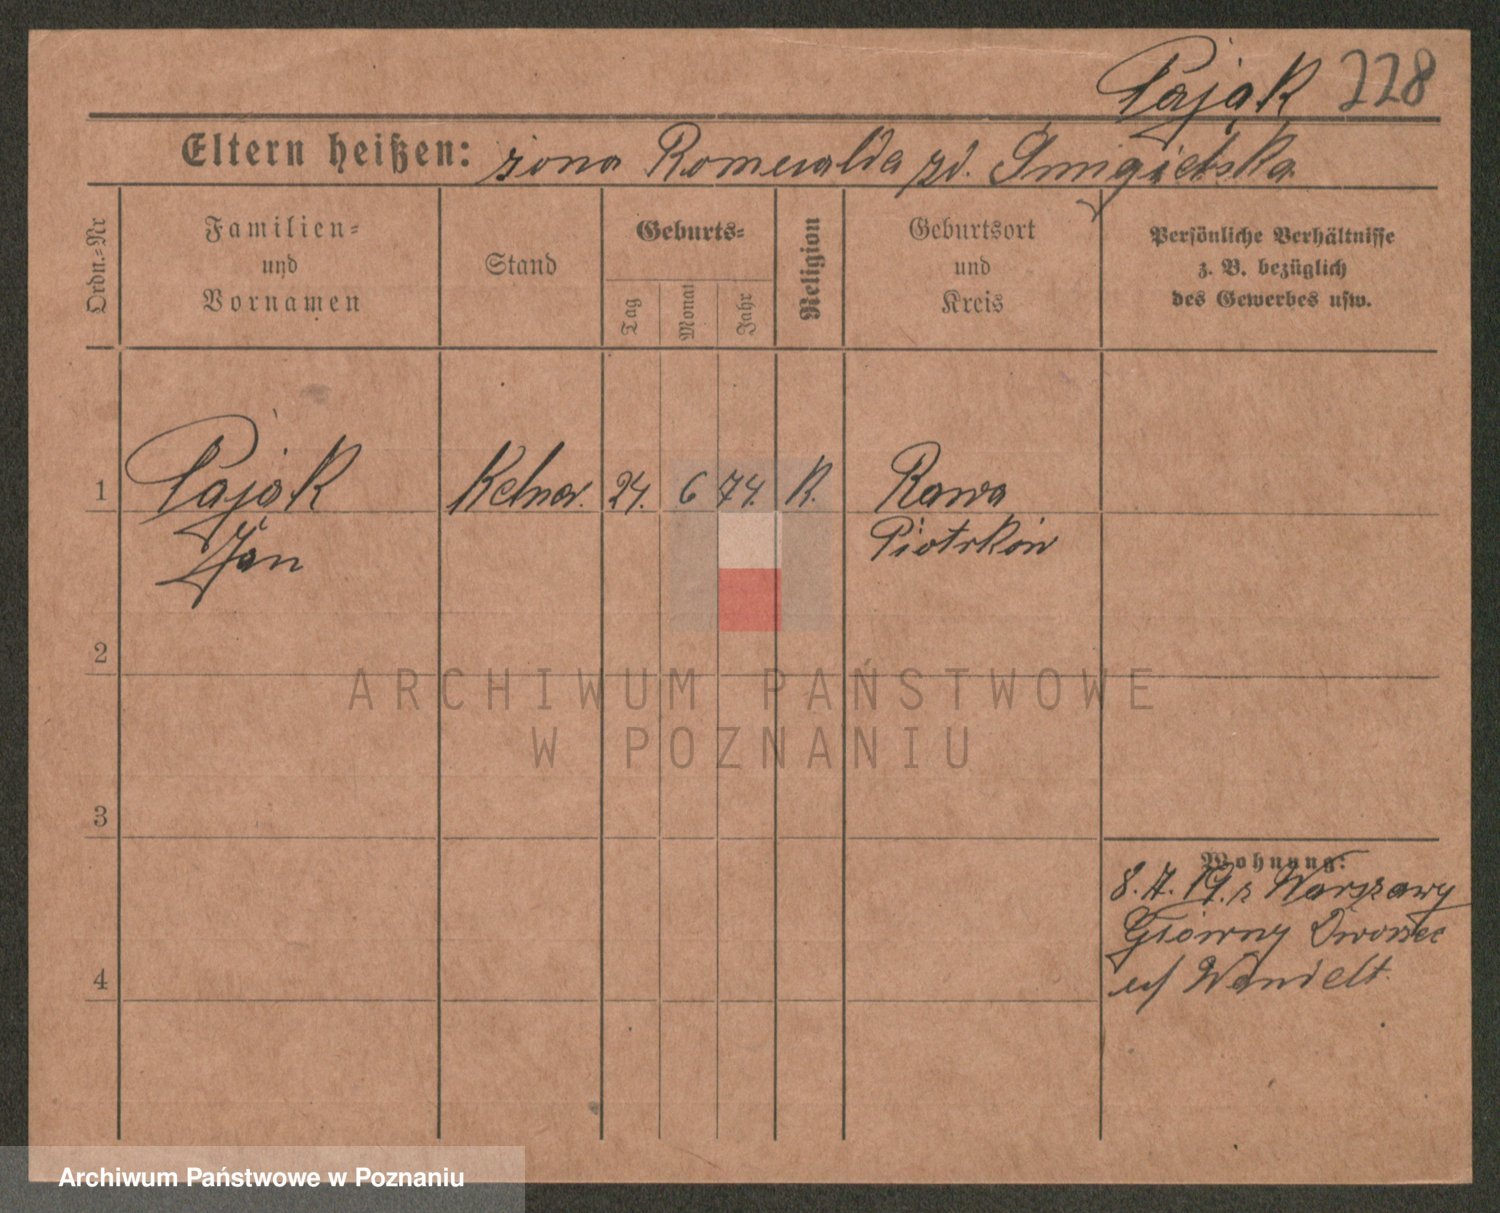 Pająk 228
Eltern heißen: żona Romualda zd. Śmigielska
Ordn.-Nr
Familien- und Vornamen
Stand
Geburts-
Tag
Monat
Jahr
Religion
Geburtsort und Kreis
Persönliche Verhältnisse
z. B. bezüglich
des Gewerbes usw.
1 Pająk Kelner. 24. 6 74. R. Rawa
Jan Piotrków
2
ARCHIWUM PAŃSTWOWE
W POZNANIU
3
Wohnung:
8. 7. 19. z Warszawy
Główny Dworzec
4
Archiwum Państwowe w Poznaniu